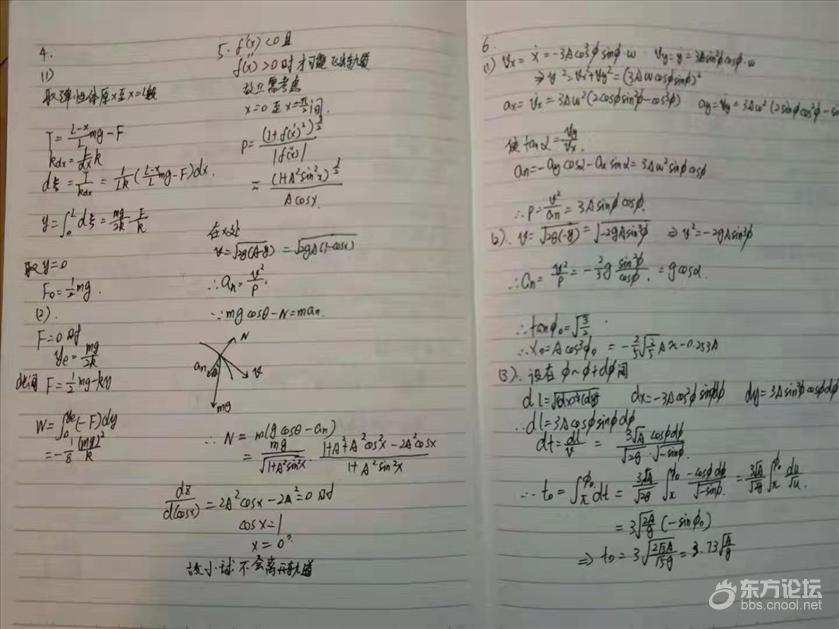 4.
(1)
取弹性体原x至x=L段
T = \frac{L-x}{L}mg - F
k_{dx} = \frac{L}{dx}k
dξ = \frac{T}{k_{dx}} = \frac{1}{Lk}(\frac{L-x}{L}mg-F)dx.
y = ∫_0^L dξ = \frac{mg}{2k} - \frac{F}{k}
取 y=0
F_0 = \frac{1}{2}mg.
(2).
F=0时
y_e = \frac{mg}{2k}
此间 F = \frac{1}{2}mg-ky
W = ∫_0^{y_e}(-F)dy
= -\frac{1}{8}\frac{(mg)^2}{k}
5. f(x)<0且
f(x)>0时才可能飞离轨道
故只需考虑
x=0至x=\frac{π}{2}间.
ρ = \frac{(1+f(x)^2)^{\frac{3}{2}}}{|f(x)|}
= \frac{(1+A^2sin^2x)^{\frac{3}{2}}}{Acosx}
在x处
v=\sqrt{2g(A-y)} = \sqrt{2gA(1-cosx)}
∴a_n = \frac{v^2}{ρ}.
∵mgcosθ-N=ma_n
N
a_n
v
mg
∴ N = m(gcosθ-a_n)
= \frac{mg}{\sqrt{1+A^2sin^2x}} · \frac{1+A^2+A^2cos^2x-2A^2cosx}{1+A^2sin^2x}
\frac{dz}{d(cosx)} = 2A^2cosx-2A^2=0时
cosx=1
x=0°
故小球不会离开轨道
6.
(1) v_x = ẋ = -3Acos^2φsinφ·ω v_y=ẏ=3Asin^2φcosφ·ω
⇒ v^2=v_x^2+v_y^2=(3Aωcosφsinφ)^2
a_x=v̇_x=3Aω^2(2cosφsin^2φ-cos^3φ) a_y=v̇_y=3Aω^2(2sinφcos^2φ-sin
使tanα=\frac{v_y}{v_x}.
a_n=-a_ycosα-a_xsinα=3Aω^2sinφcosφ
∴ρ=\frac{v^2}{a_n}=3Asinφcosφ.
v=\sqrt{2g(-y)}=\sqrt{-2gAsin^3φ} ⇒ v^2=-2gAsin^3φ
∴a_n=\frac{v^2}{ρ}=-\frac{2}{3}g\frac{sin^2φ}{cosφ}=gcosα.
∴tanφ_0=\sqrt{\frac{3}{2}}
∴x_0=Acos^3φ_0=-\frac{2}{5}\sqrt{\frac{2}{5}}A≈-0.253A
(3). 设在φ~φ+dφ间
dl=\sqrt{(dx)^2+(dy)^2} dx=-3Acos^2φsinφdφ dy=3Asin^2φcosφdφ
∴dl=3Acosφsinφdφ
dt=\frac{dl}{v}=\frac{3\sqrt{A}cosφdφ}{\sqrt{2g}·\sqrt{-sinφ}}
∴t_0=∫_π^{φ_0}dt=\frac{3\sqrt{A}}{\sqrt{2g}}∫_π^{φ_0}\frac{-cosφdφ}{\sqrt{-sinφ}}=\frac{3\sqrt{A}}{\sqrt{2g}}∫_π^{φ_0}\frac{du}{\sqrt{u}}.
=3\sqrt{\frac{2A}{g}}(-sinφ_0)
⇒t_0=3\sqrt{\frac{2\sqrt{3}A}{\sqrt{5}g}}=3.73\sqrt{\frac{A}{g}}
东方论坛
bbs.cnool.net